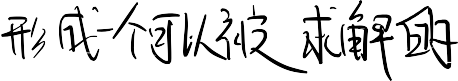 形成一个可以被求解的